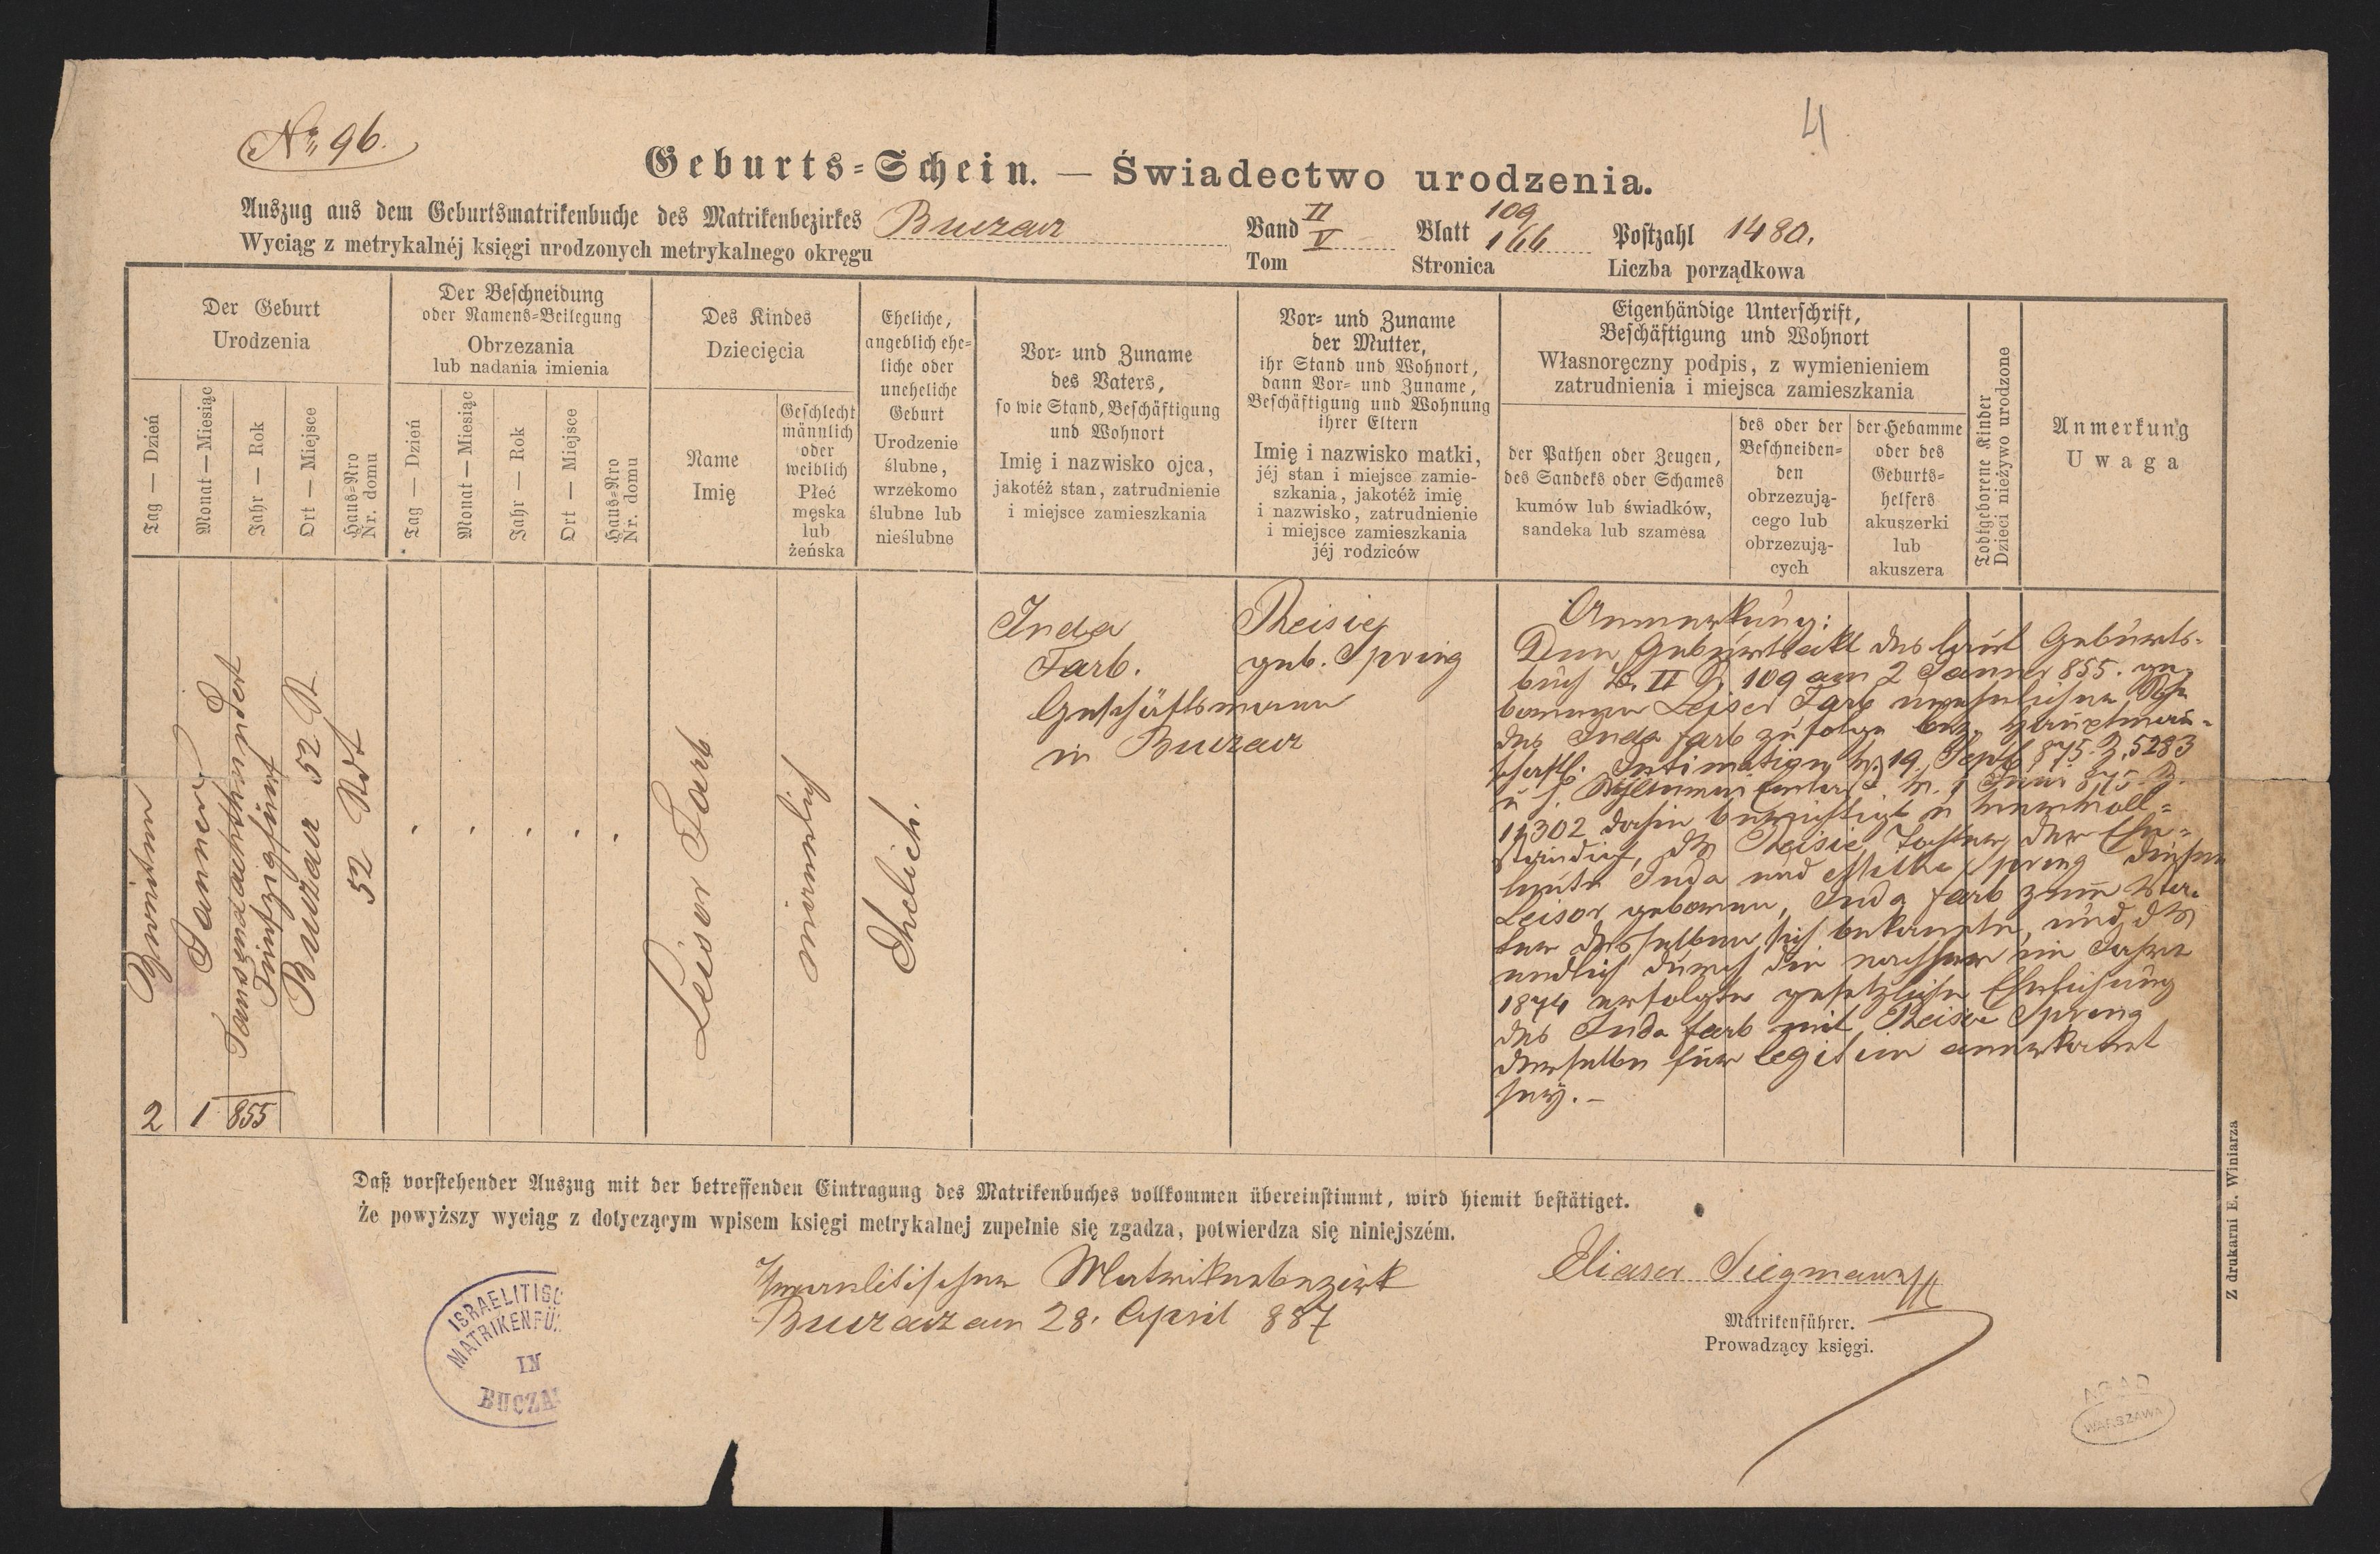 Nr. 96.
4
Geburts-Schein. — Świadectwo urodzenia.
Auszug aus dem Geburtsmatrikenbuche des Matrikenbezirkes Buczacz
Wyciąg z metrykalnéj księgi urodzonych metrykalnego okręgu
Band II V
Tom
Blatt 109 166
Stronica
Postzahl 1480.
Liczba porządkowa
Der Geburt
Urodzenia
Tag — Dzień
Monat — Miesiąc
Jahr — Rok
Ort — Miejsce
Haus-Nro
Nr. domu
Der Beschneidung
oder Namens-Beilegung
Obrzezania
lub nadania imienia
Tag — Dzień
Monat — Miesiąc
Jahr — Rok
Ort — Miejsce
Haus-Nro
Nr. domu
Des Kindes
Dziecięcia
Name
Imię
Geschlecht
männlich
oder
weiblich
Płeć
męska
lub
żeńska
Eheliche,
angeblich ehe-
liche oder
uneheliche
Geburt
Urodzenie
ślubne,
wrzekomo
ślubne lub
nieślubne
Vor- und Zuname
des Vaters,
so wie Stand, Beschäftigung
und Wohnort
Imię i nazwisko ojca,
jakotéż stan, zatrudnienie
i miejsce zamieszkania
Vor- und Zuname
der Mutter,
ihr Stand und Wohnort,
dann Vor- und Zuname,
Beschäftigung und Wohnung
ihrer Eltern
Imię i nazwisko matki,
jéj stan i miejsce zamie-
szkania, jakotéż imię
i nazwisko, zatrudnienie
i miejsce zamieszkania
jéj rodziców
Eigenhändige Unterschrift,
Beschäftigung und Wohnort
Własnoręczny podpis, z wymienieniem
zatrudnienia i miejsca zamieszkania
der Pathen oder Zeugen,
des Sandeks oder Schames
kumów lub świadków,
sandeka lub szamesa
des oder der
Beschneiden-
den
obrzezują-
cego lub
obrzezują-
cych
der Hebamme
oder des
Geburts-
helfers
akuszerki
lub
akuszera
Todtgeborene Kinder
Dzieci nieżywo urodzone
Anmerkung
Uwaga
Zweiten
Janner
Tausendachthundert
Fünfzigfünf
Buczacz 52 St.
52 Std
2 1 855
Leisor Farb
männlich
Ehelich.
Juda
Farb.
Geschäftsmann
in Buczacz
Reisie
geb. Spring
Anmerkung:
Den Geburtsakt des laut Geburts-
buch B. II S. 109 am 2 Janner 855. ge
bornen Lejser Farb unehelicher Sohn
des Juda Farb zufolge bez. Hauptman-
schaftl. Intimation v. 19. Sept 875 Z. 5283
u. h. Statthalterei v. 1 Juni 875 Z.
14302 dahin berichtigt u vervoll-
ständigt, dß Reisie Tochter der Ehe-
leute Juda und Spring diesen
Leisor geboren, Juda Farb zum Va-
ter desselben sich bekannte, und dß
endlich durch die nachher im Jahre
1874 erfolgte gesetzliche Ehelichung
des Juda Farb mit Reisie Spring
derselbe für legitim anerkannt
sey. —
Daß vorstehender Auszug mit der betreffenden Eintragung des Matrikenbuches vollkommen übereinstimmt, wird hiemit bestätiget.
Że powyższy wyciąg z dotyczącym wpisem księgi metrykalnej zupełnie się zgadza, potwierdza się niniejszém.
Israelitischer Matrikenbezirk
Buczacz am 28. April 887
Eliaser Siegmann
Matrikenführer.
Prowadzący księgi.
ISRAELITISC
MATRIKENFÜ
IN
BUCZA
Z drukarni E. Winiarza
AGAD
WARSZAWA